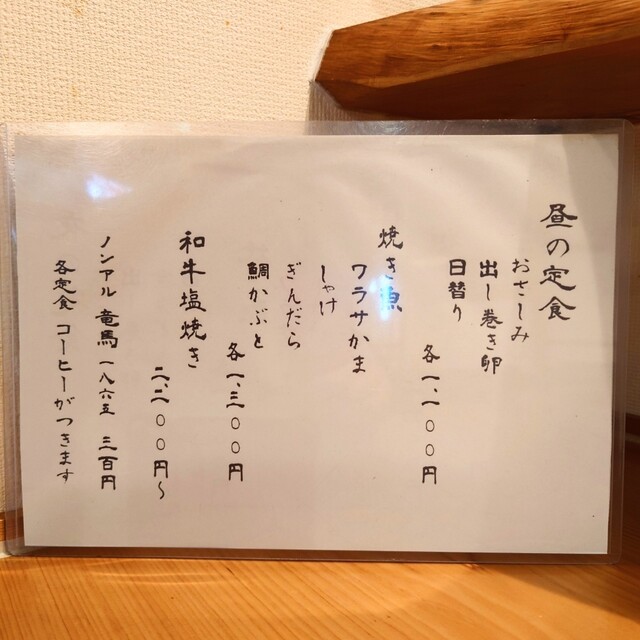 昼の定食
おさしみ
出し巻き卵
日替り
各一、一〇〇円
焼き魚
ワラサかま
しゃけ
ぎんだら
鯛かぶと
各一、三〇〇円
和牛塩焼き
二、二〇〇円〜
ノンアル 竜馬一八六五 三百円
各定食 コーヒーがつきます